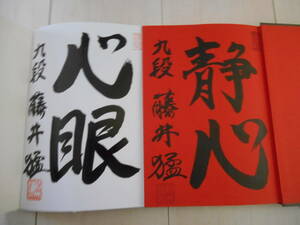 静心
九段 藤井猛
心眼
九段 藤井猛